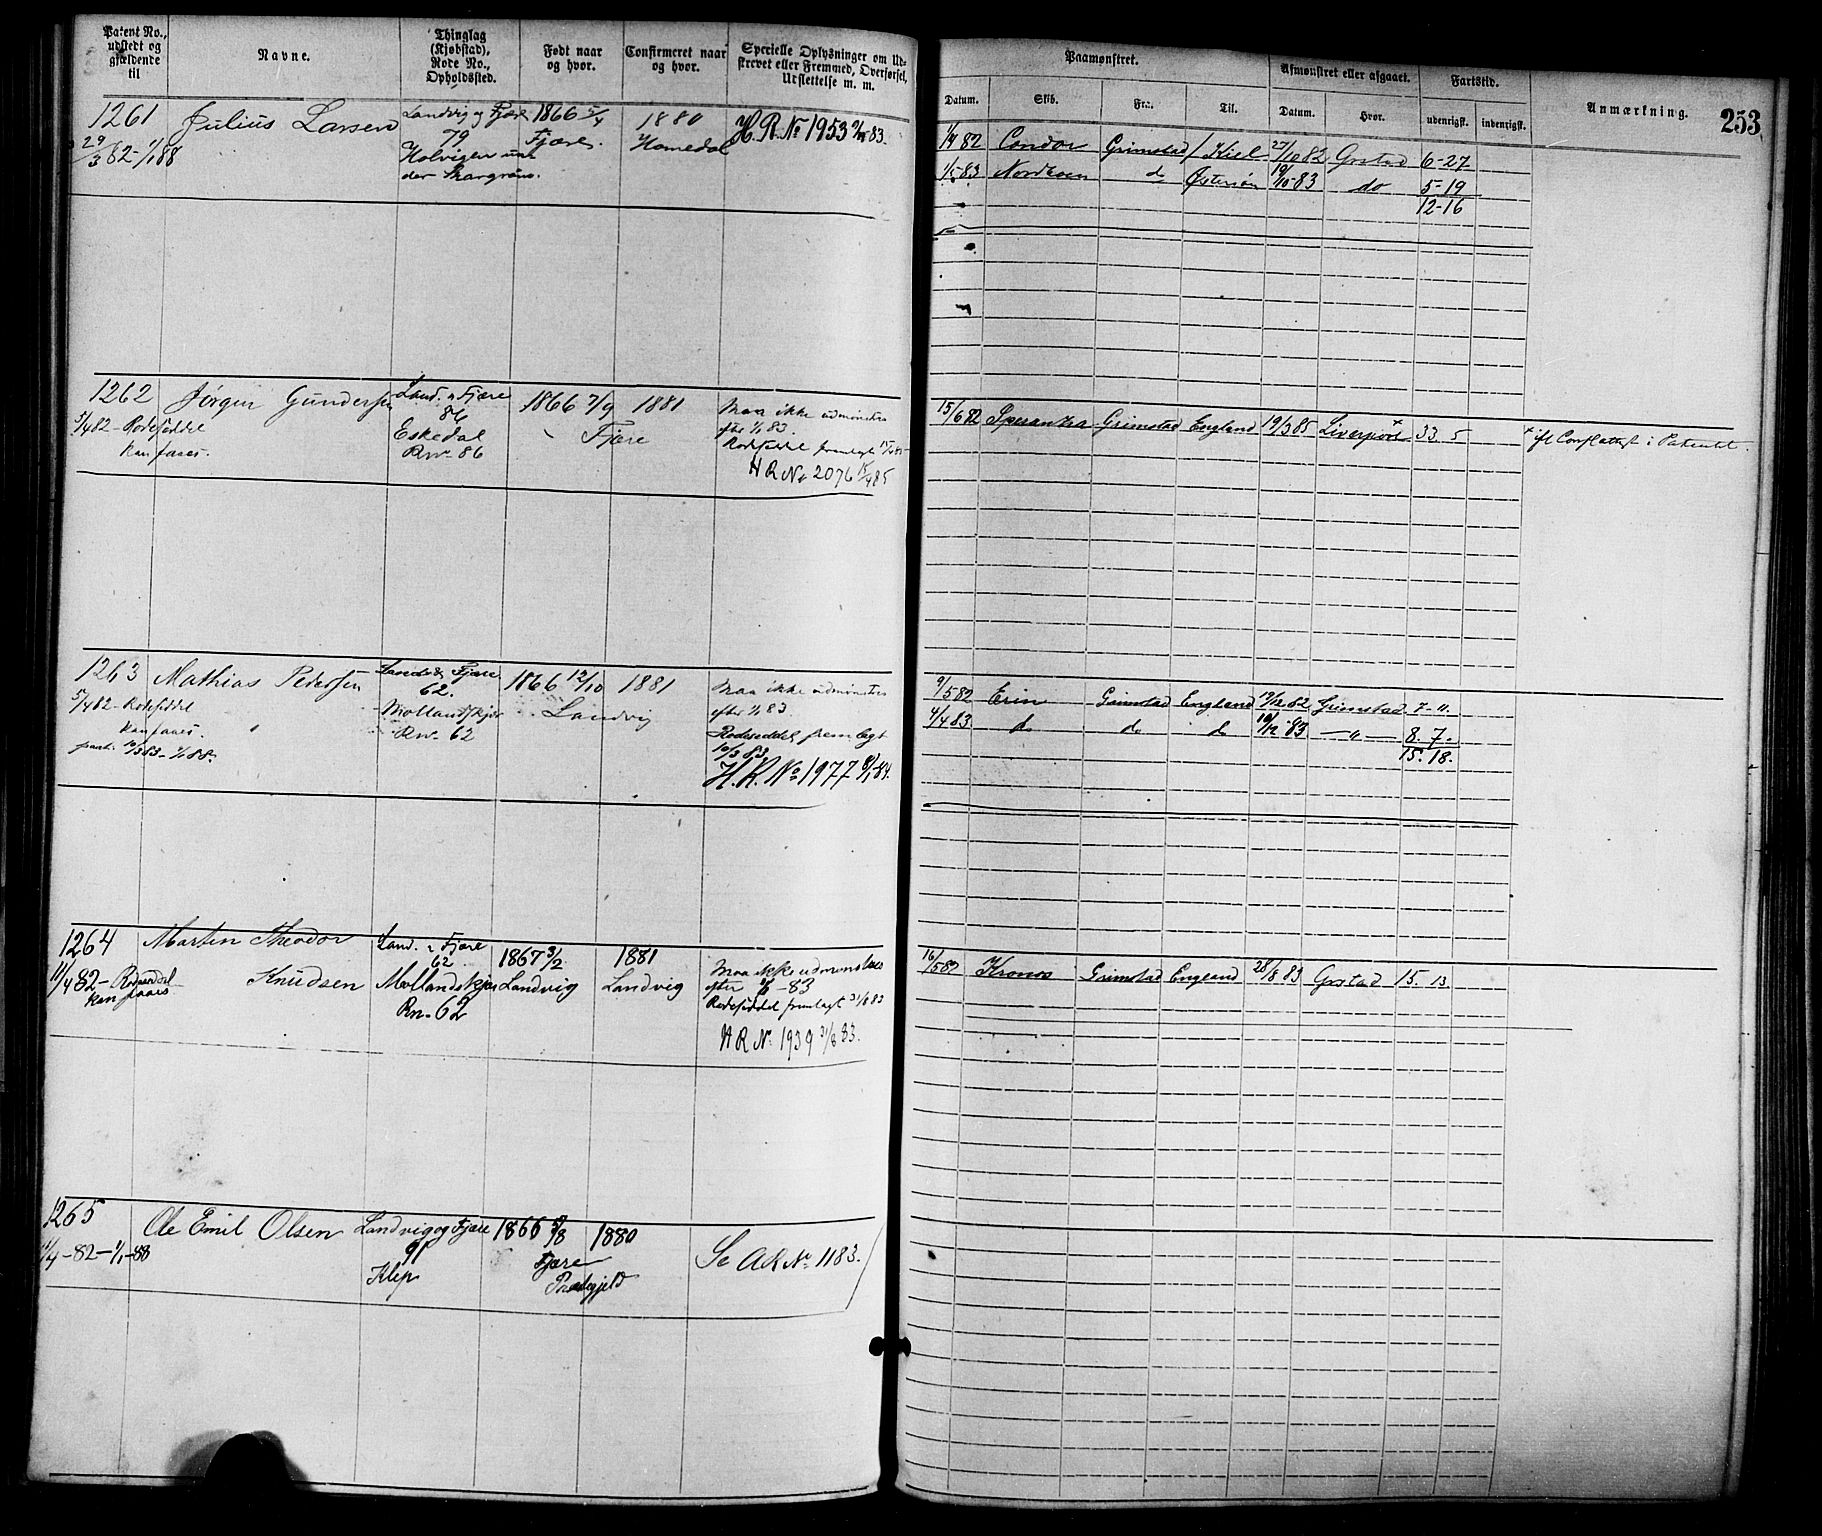 Patent No., udstedt og gjældende til
Navne.
Thinglag (Kjøbstad), Rode No., Opholdssted.
Født naar og hvor.
Confirmeret naar og hvor.
Specielle Oplysninger om Udskrevet eller Fremmed, Overførsel, Udslettelse m. m.
Paamønstret.
Afmønstret eller afgaaet.
Fartstid.
Anmærkning.
253
Datum.
Skib.
Fr.:
Til.
Datum.
Hvor.
udenrigst.
indenrigst.
1261 Julius Larsen Landvig og Fjære 1866 5/4 1880 H. R. No 1953 83.
29/3 82-1/1 88 79 Fjære. Homedal
Holvigen un-
der Skargrøns.
82 Condor Grimstad Kiel 27/10 82 Grstad 6-27
83 Nordhavn do Østersøn 19/10-83 do 5-19
12-16
1262 Jørgen Gundersen Land. & Fjære 1866 7/9 1881 Maa ikke udmønstres
5/4 82-Rodeseddel 86 Fjære efter 1/1 83.
kan faaes. Eskedal Rodeseddel fremlagt
Rn- 86 H R No 2076 15/4 85
15/6 82 Speranza Grimstad England 19/3 85 Liverpool + 33. 5 + ifl Conflattest i Patentet.
1263 Mathias Pedersen Landv & Fjære 1866 12/10 1881 Maa ikke udmønstres
5/4 82-Rodeseddel 62. Landvig efter 1/1 83.
kan faaes. Mollandskjær Rodeseddel fremlagt
10/3 83-1/1 88. Rn- 62 10/3 83.
H. R. No 1977 8/1 84.
9/5 82 Erin Grimstad England 19/12 82 Grimstad 7-11.
4/4 83. do do do 10/12 83 —"— 8. 7.
15. 18.
1264 Martin Theodor Land. & Fjære 1867 3/2 1881 Maa ikke udmønstres
11/4 82-Rodeseddel Knudsen 62 Landvig Landvig efter -83
kan faaes Mollandskjær Rodeseddel fremlagt 31/8 83
Rn- 62 H R No 1939 31/8 83.
16/5 82 Kronos Grimstad England 28/8 83 Grstad 15. 13
1265 Ole Emil Olsen Landvig og Fjære 1866 5/8 1880 Se A R No 1183.
11/4-82-1/1-88 91 Fjære
Klep Præstegjeld